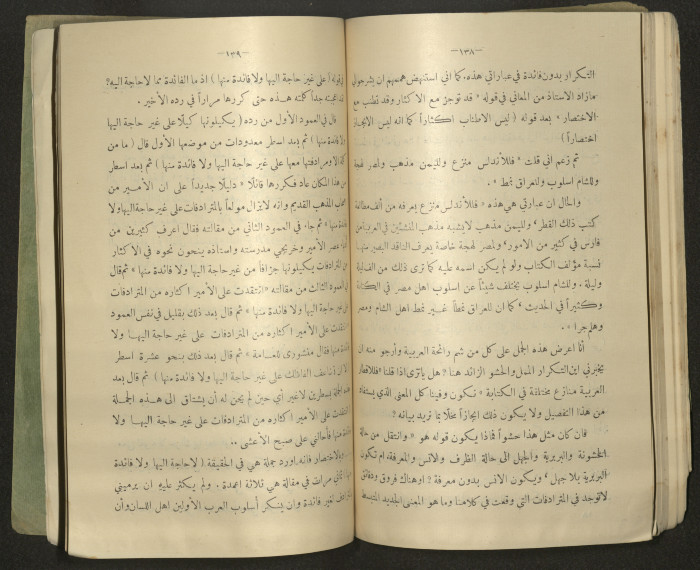 —١٣٨—
التكرار بدون فائدة في عباراتي هذه. كما اني استنهض هممهم ان يشرحوا لي
مازاد الاستاذ من المعاني في قوله « قد توجز مع الاكثار وقد تطنب مع
الاختصار » بعد قوله ( ليس الاطناب اكثاراً كما انه ليس الايجاز
اختصاراً )
ثم زعم اني قلت « فللأندلس منزع ولليمن مذهب ولمصر لهجة
وللشام اسلوب وللعراق نمط » .
والحال ان عبارتي هي هذه « فللأندلس منزع يعرفه من ألف مطالعة
كتب ذلك القطر ، ولليمن مذهب لايشبه مذهب المنشئين في العربية من
فارس في كثير من الامور ، ولمصر لهجة خاصة يعرف الناقد البصير منها
نسبة مؤلف الكتاب ولو لم يكن اسمه عليه كما ترى ذلك من الف ليلة
وليلة ، وللشام اسلوب يختلف شيئاً عن اسلوب اهل مصر في الكتابة
وكثيراً في الحديث ، كما ان للعراق نمطاً غير نمط اهل الشام ومصر
وهلم جرا » .
أنا اعرض هذه الجمل على كل من شم رائحة العربية وأرجو منه ان
يخبرني اين التكرار الممل والحشو الزائد هنا ? هل ياترى اذا قلنا « فللاقطار
العربية منازع مختلفة في الكتابة » نكون وفينا كل المعنى الذي يستفاد
من هذا التفصيل ولا يكون ذلك ايجازاً مخلاً بما نريد بيانه ?
فان كان مثل هذا حشواً فماذا يكون قوله هو « وانتقل من حالة
الخشونة والبربرية والجهل الى حالة الظرف والانس والمعرفة » أم تكون
البربرية بلا جهل ، ويكون الانس بدون معرفة ? اوهناك فروق ودقائق
لاتوجد في المترادفات التي وقعت في كلامنا وما هو المعنى الجديد المتبسط
—١٣٩—
في قوله ( على غير حاجة اليها ولا فائدة منها ) اذ ما الفائدة مما لاحاجة اليه ?
جداً كلمته هذه حتى كررها مراراً في رده الأخير .
قال في العمود الأول من رده ( يكيلونها كيلاً على غير حاجة اليها
ولا فائدة منها ) ثم بعد اسطر معدودات من موضعها الأول قال ( ما من
ومرادفتها معها على غير حاجة اليها ولا فائدة منها ) ثم بعد اسطر
من هذا المكان عاد فكررها قائلاً « دليلاً جديداً على ان الأمير من
المذهب القديم وانه لايزال مولعاً بالمترادفات على غير حاجة اليها ولا
فائدة منها » ثم جاء في العمود الثاني من مقالته فقال اعرف كثيرين من
عصر الأمير وخريجي مدرسته واستاذه ينحون نحوه في الاكثار
من المترادفات يكيلونها جزافاً من غير حاجة اليها ولا فائدة منها » ثم قال
في العمود الثالث من مقالته « انتقدت على الأمير اكثاره من المترادفات
على غير حاجة اليها ولا فائدة منها » ثم قال بعد ذلك بقليل في نفس العمود
انتقدت على الأمير اكثاره من المترادفات على غير حاجة اليها ولا
فائدة منها فقال منشورى للعامة » ثم قال بعد ذلك بنحو عشرة اسطر
على غير حاجة اليها ولا فائدة منها ) ثم قال بعد
بسطرين لا غير أي حين لم يحن له أن يشتاق الى هذه الجملة
انتقدت على الأمير اكثاره من المترادفات على غير حاجة اليها ولا
فائدة منها فأحالني على صبح الأعشى ..
وبالاختصار فانه اورد جملة هي في الحقيقة ( لاحاجة اليها ولا فائدة
منها ) ثماني مرات في مقالة هي ثلاثة اعمدة . ولم يكثر عليه ان يرميني
لغير فائدة وان ينكر أسلوب العرب الأولين اهل اللسان وأن